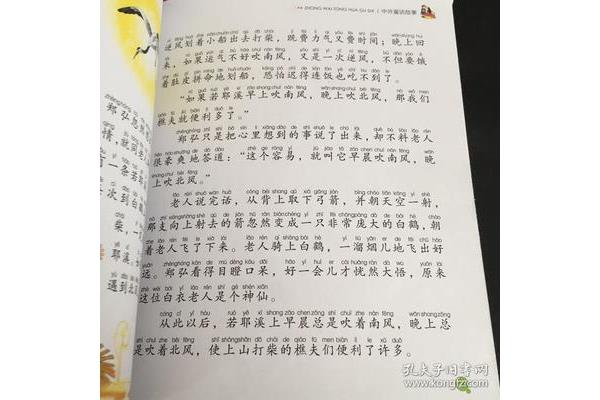 ZHONG WAI TONG HUA GU SHI | 中外童话故事
逆风划着小船出去打柴，既费力气又费时间；晚上回
来，如果运气不好吹南风，又是一次逆风，不但要饿
着肚皮拼命地划船，恐怕迟得连饭也吃不到了。
“如果若耶溪早上吹南风，晚上吹北风，那我们
樵夫就便利多了。”
郑弘只是把心里想到的事说了出来，却不料老人
很豪爽地答道：“这个容易，就叫它早晨吹南风，晚
上吹北风。”
老人说完话，从背上取下弓箭，并朝天空一射，
那支向上射去的箭忽然变成一只非常庞大的白鹤，朝
着老人飞了下来。老人骑上白鹤，一溜烟儿地飞出好
远。郑弘看得目瞪口呆，好一会儿才恍然大悟，原来
这位白衣老人是个神仙。
从此以后，若耶溪上早晨总是吹着南风，晚上总
是吹着北风，使上山打柴的樵夫们便利了许多。
郑弘恩
情，就
有一条若
次到白
耶溪
遇到北
孔夫子旧书网
www.kongfz.com